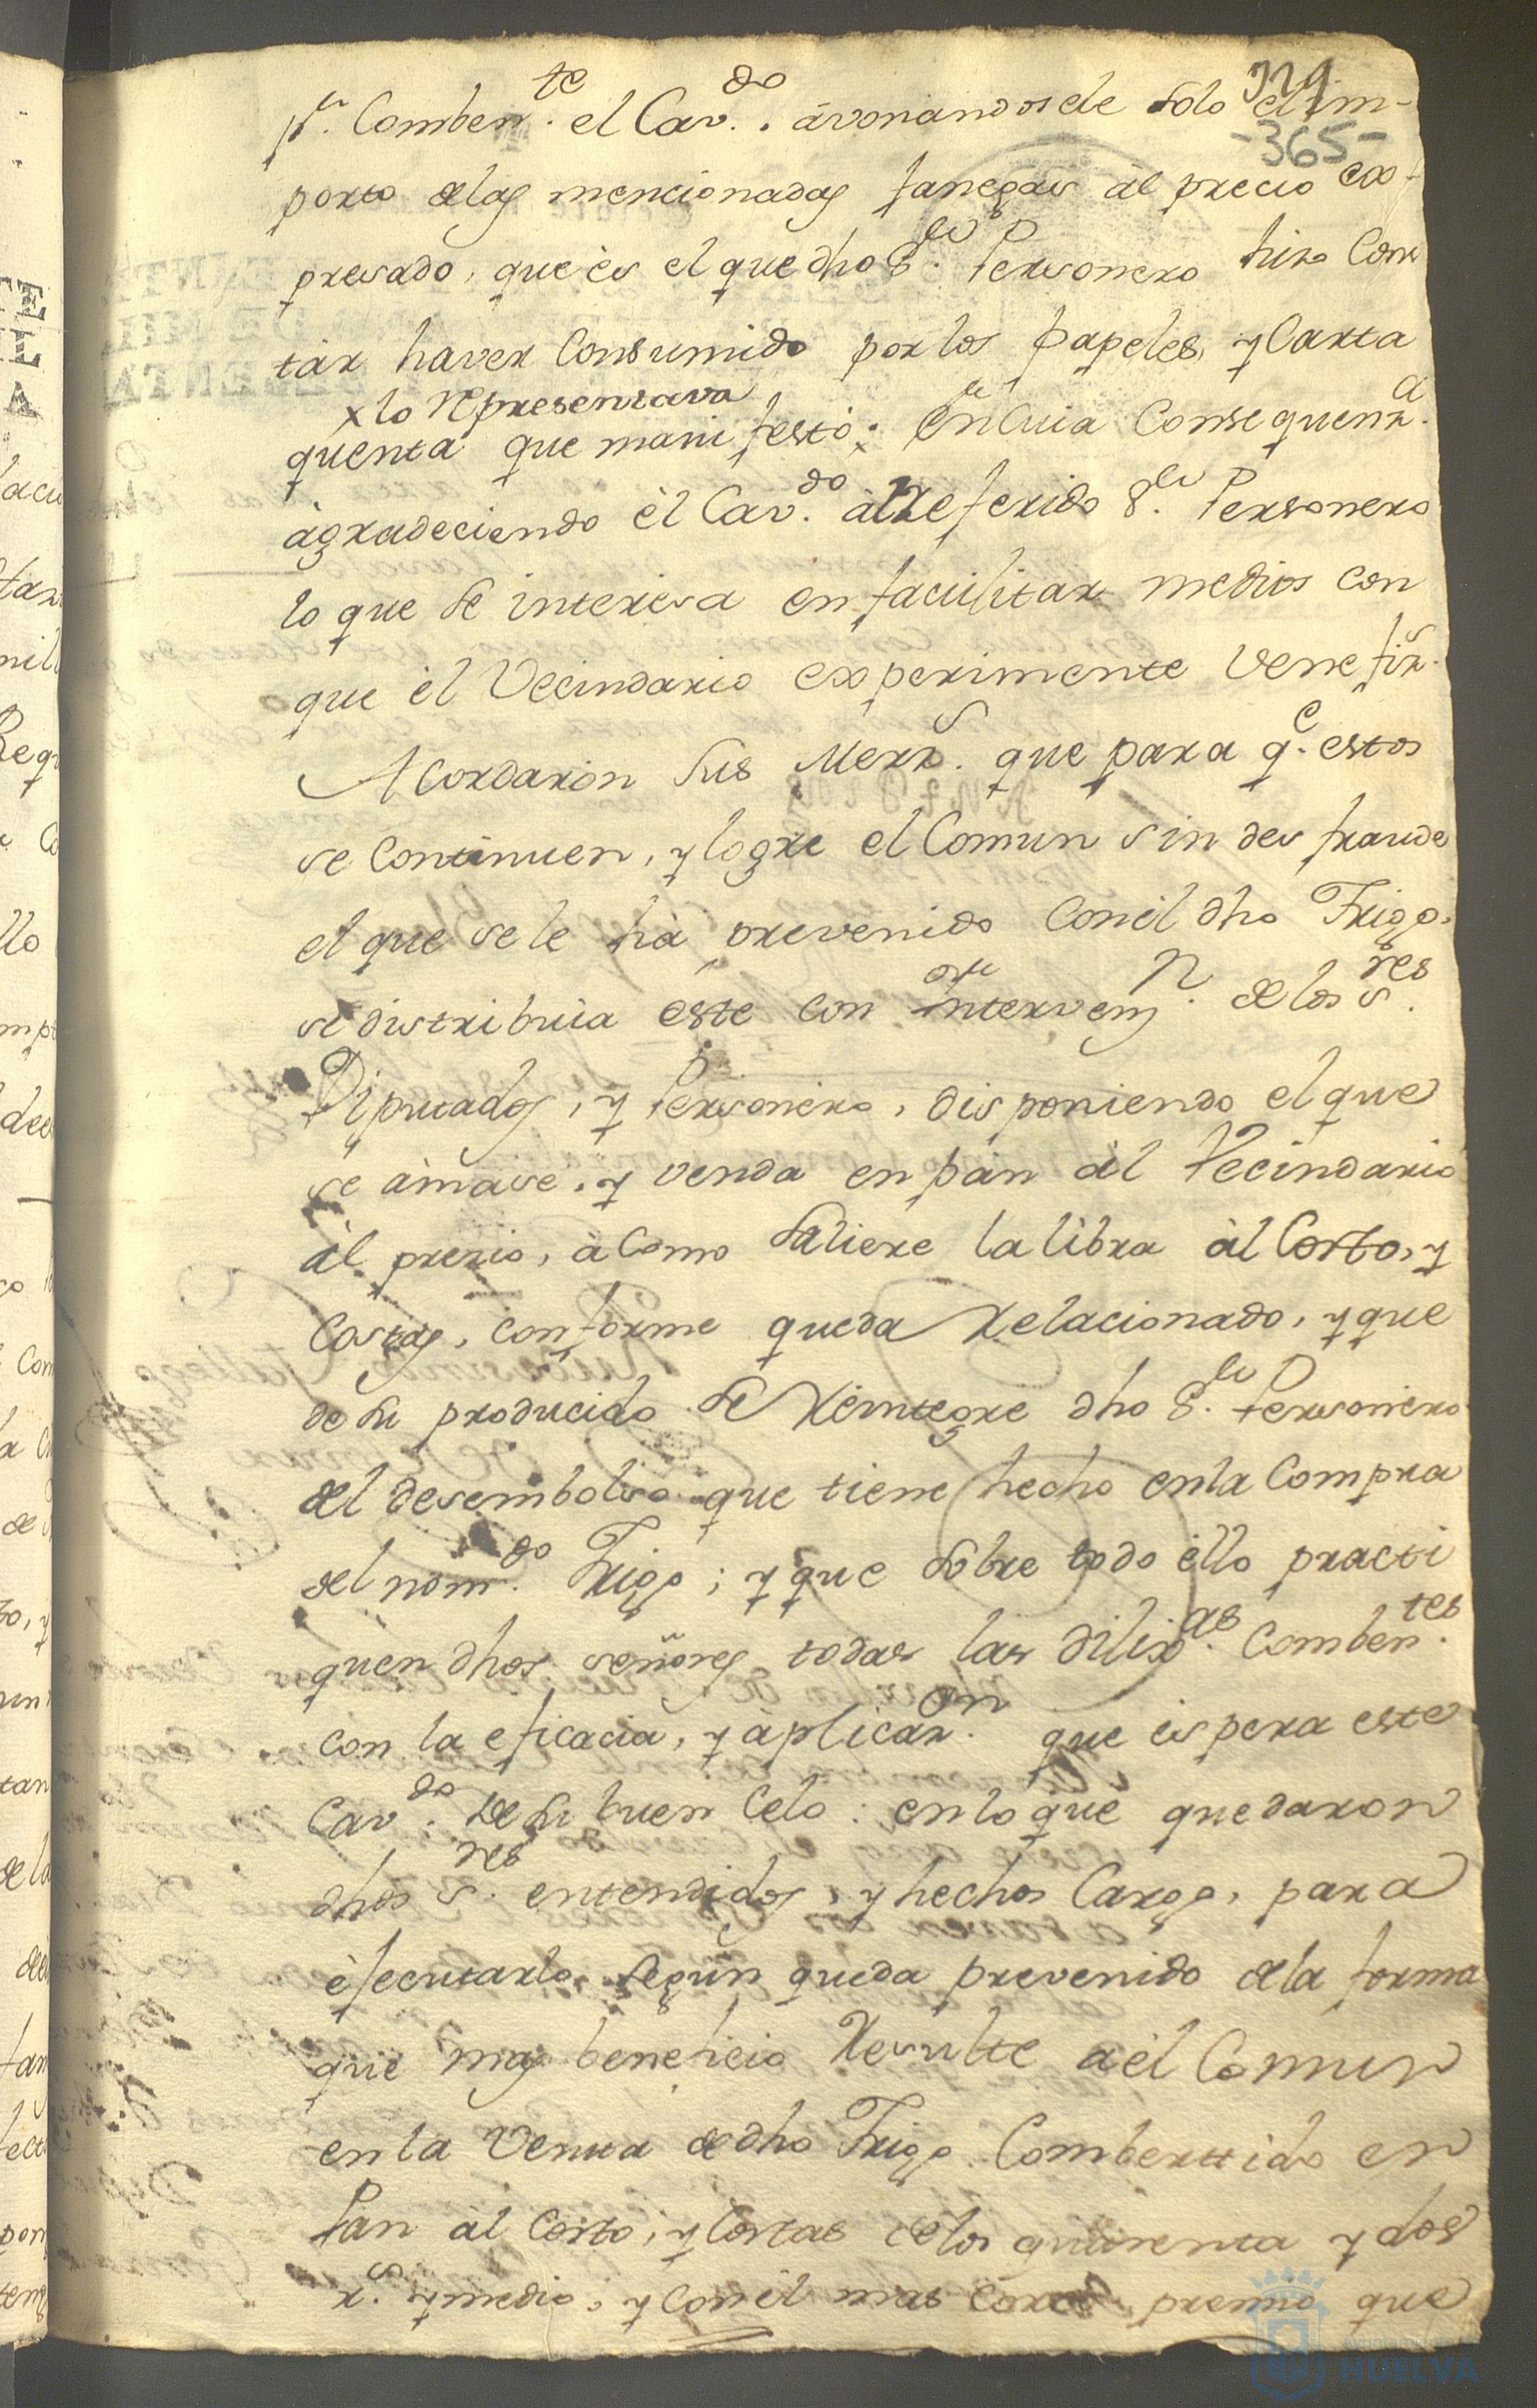 329
-365-
pr. Comben.te el Cav.do avonandosele solo el im-
porto delas mencionadas fanegas àl precio ex-
presado, que ès el que dho S.or Personero hizo Cons
tàr haver Consumido por los papeles, y Carta
x lo representava
quenta que manifestò x; en Cuia Consequenz.a
àgradeciendo èl Cav.do àl Referido S.or Personero
lo que se interesa en facilitar medios con
que èl Vecindario experimente Venefiz.s
Acordaron Sus Merz.s que para q.e estos
se Continuen, y logre el Comun sin des fraude
el que se le hà prevenido Con èl dho Trigo,
se distribuia este con intervenz.n de los S.res
Diputados, y Personero, disponiendo el que
se àmase, y venda en pan àl Vecindario
àl prezio, à Como Saliere la libra àl Costo, y
Costas, conforme queda Relacionado, y que
de su producido se Reintegre dho S.or Personero
del desembolso que tiene hecho en la Compra
del nom.do Trigo; y que sobre todo èllo practi
quen dhos señores todas las dilix.as Comben.tes
con la eficacia, y àplicaz.on que espera este
Cav.do de su buen Celo: en lo que quedaron
dhos S.res entendidos, y hechos Cargo, para
èjecutarlo, segun queda prevenido dela forma
que mas beneficio Resulte a èl Comun
en la Venta de dho Trigo Comberttido en
Pan àl Costo, y Costas delos quarenta y dos
r.s y medio, y Con èl mas premio que
HUELVA